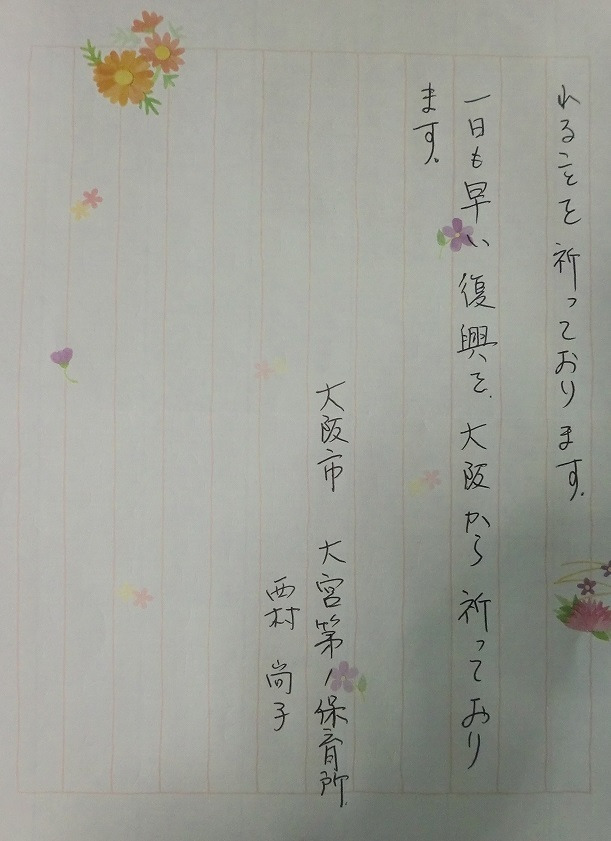 れることを祈っております。
一日も早い復興を、大阪から祈っており
ます。
大阪市 大宮第1保育所
西村 尚子